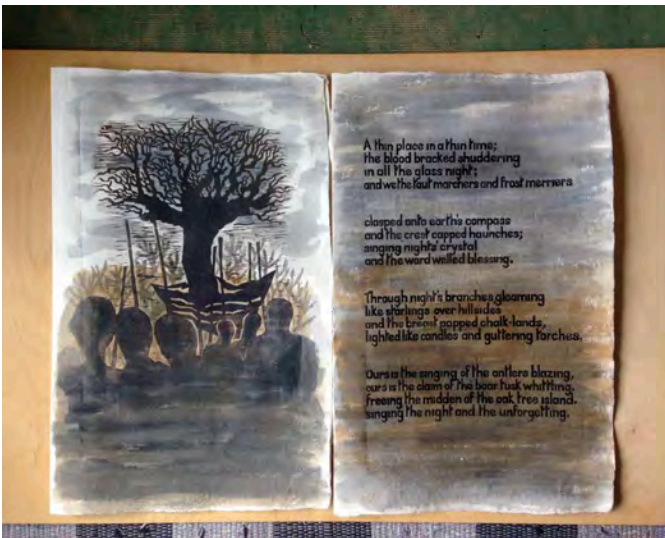 A thin place in a thin time;
the blood bracked shuddering
in all the glass night;
and we the taut marchers and frost merriers
clasped onto earth's compass
and the crest capped haunches;
singing nights' crystal
and the ward welled blessing.
Through night's branches gleaming
like starlings over hillsides
and the breast papped chalk-lands,
lighted like candles and guttering torches.
Ours is the singing of the antlers blazing,
ours is the claim of the boar tusk whittling,
freeing the midden of the oak tree island.
singing the night and the unforgetting.